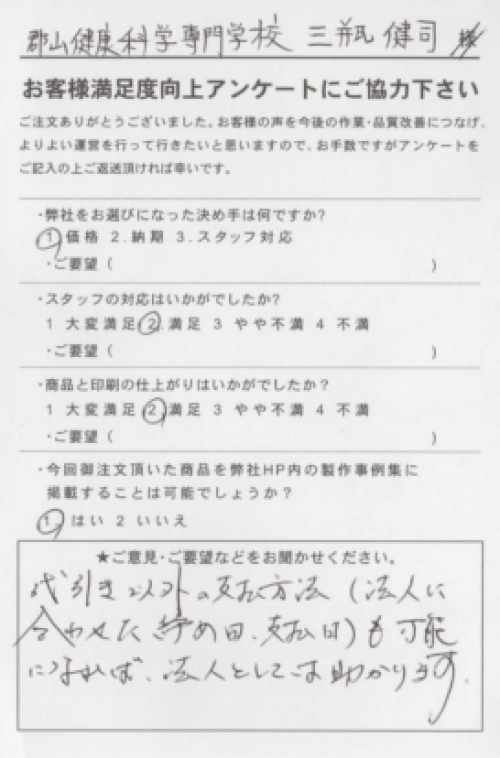 郡山健康科学専門学校 三瓶 健司 様
お客様満足度向上アンケートにご協力下さい
ご注文ありがとうございました。お客様の声を今後の作業・品質改善につなげ、
よりよい運営を行って行きたいと思いますので、お手数ですがアンケートを
ご記入の上ご返送頂ければ幸いです。
・弊社をお選びになった決め手は何ですか?
1 価格 2.納期 3.スタッフ対応
・ご要望 ( )
・スタッフの対応はいかがでしたか?
1 大変満足 2.満足 3 やや不満 4 不満
・ご要望 ( )
・商品と印刷の仕上がりはいかがでしたか?
1 大変満足 2.満足 3 やや不満 4 不満
・ご要望 ( )
・今回御注文頂いた商品を弊社HP内の製作事例集に
掲載することは可能でしょうか?
1. はい 2 いいえ
★ご意見・ご要望などをお聞かせください。
代引き以外の支払方法(法人に
合わせた締め日、支払日)も可能
になれば、法人としては助かります。